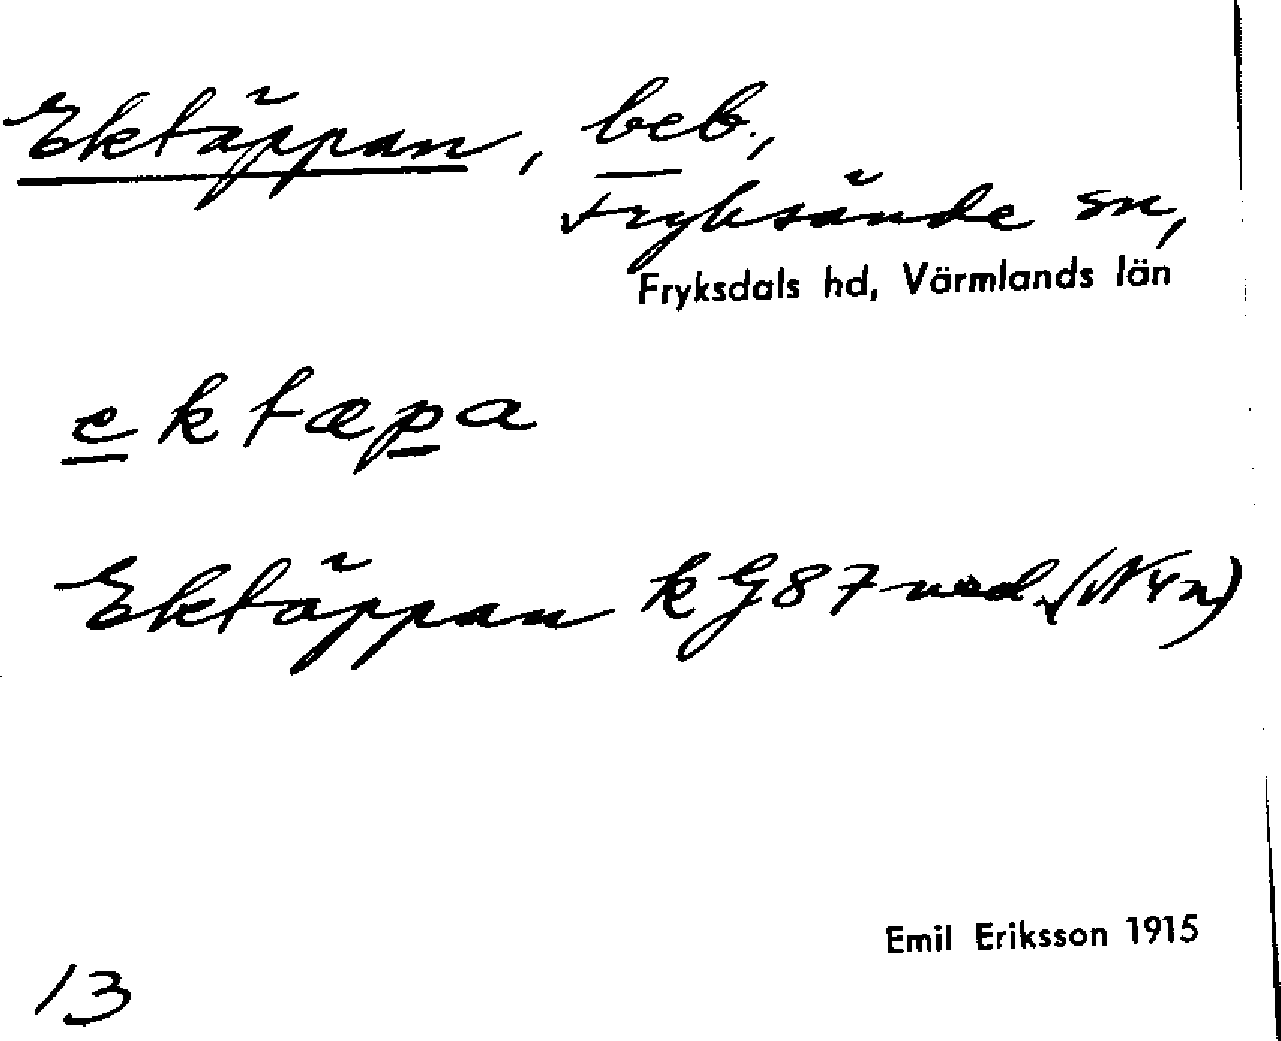 Ektäppan, beb.,
Fryksände sn,
Fryksdals hd, Värmlands län
ektæpa
Ektäppan k G87 ned. (N4n)
Emil Eriksson 1915
13